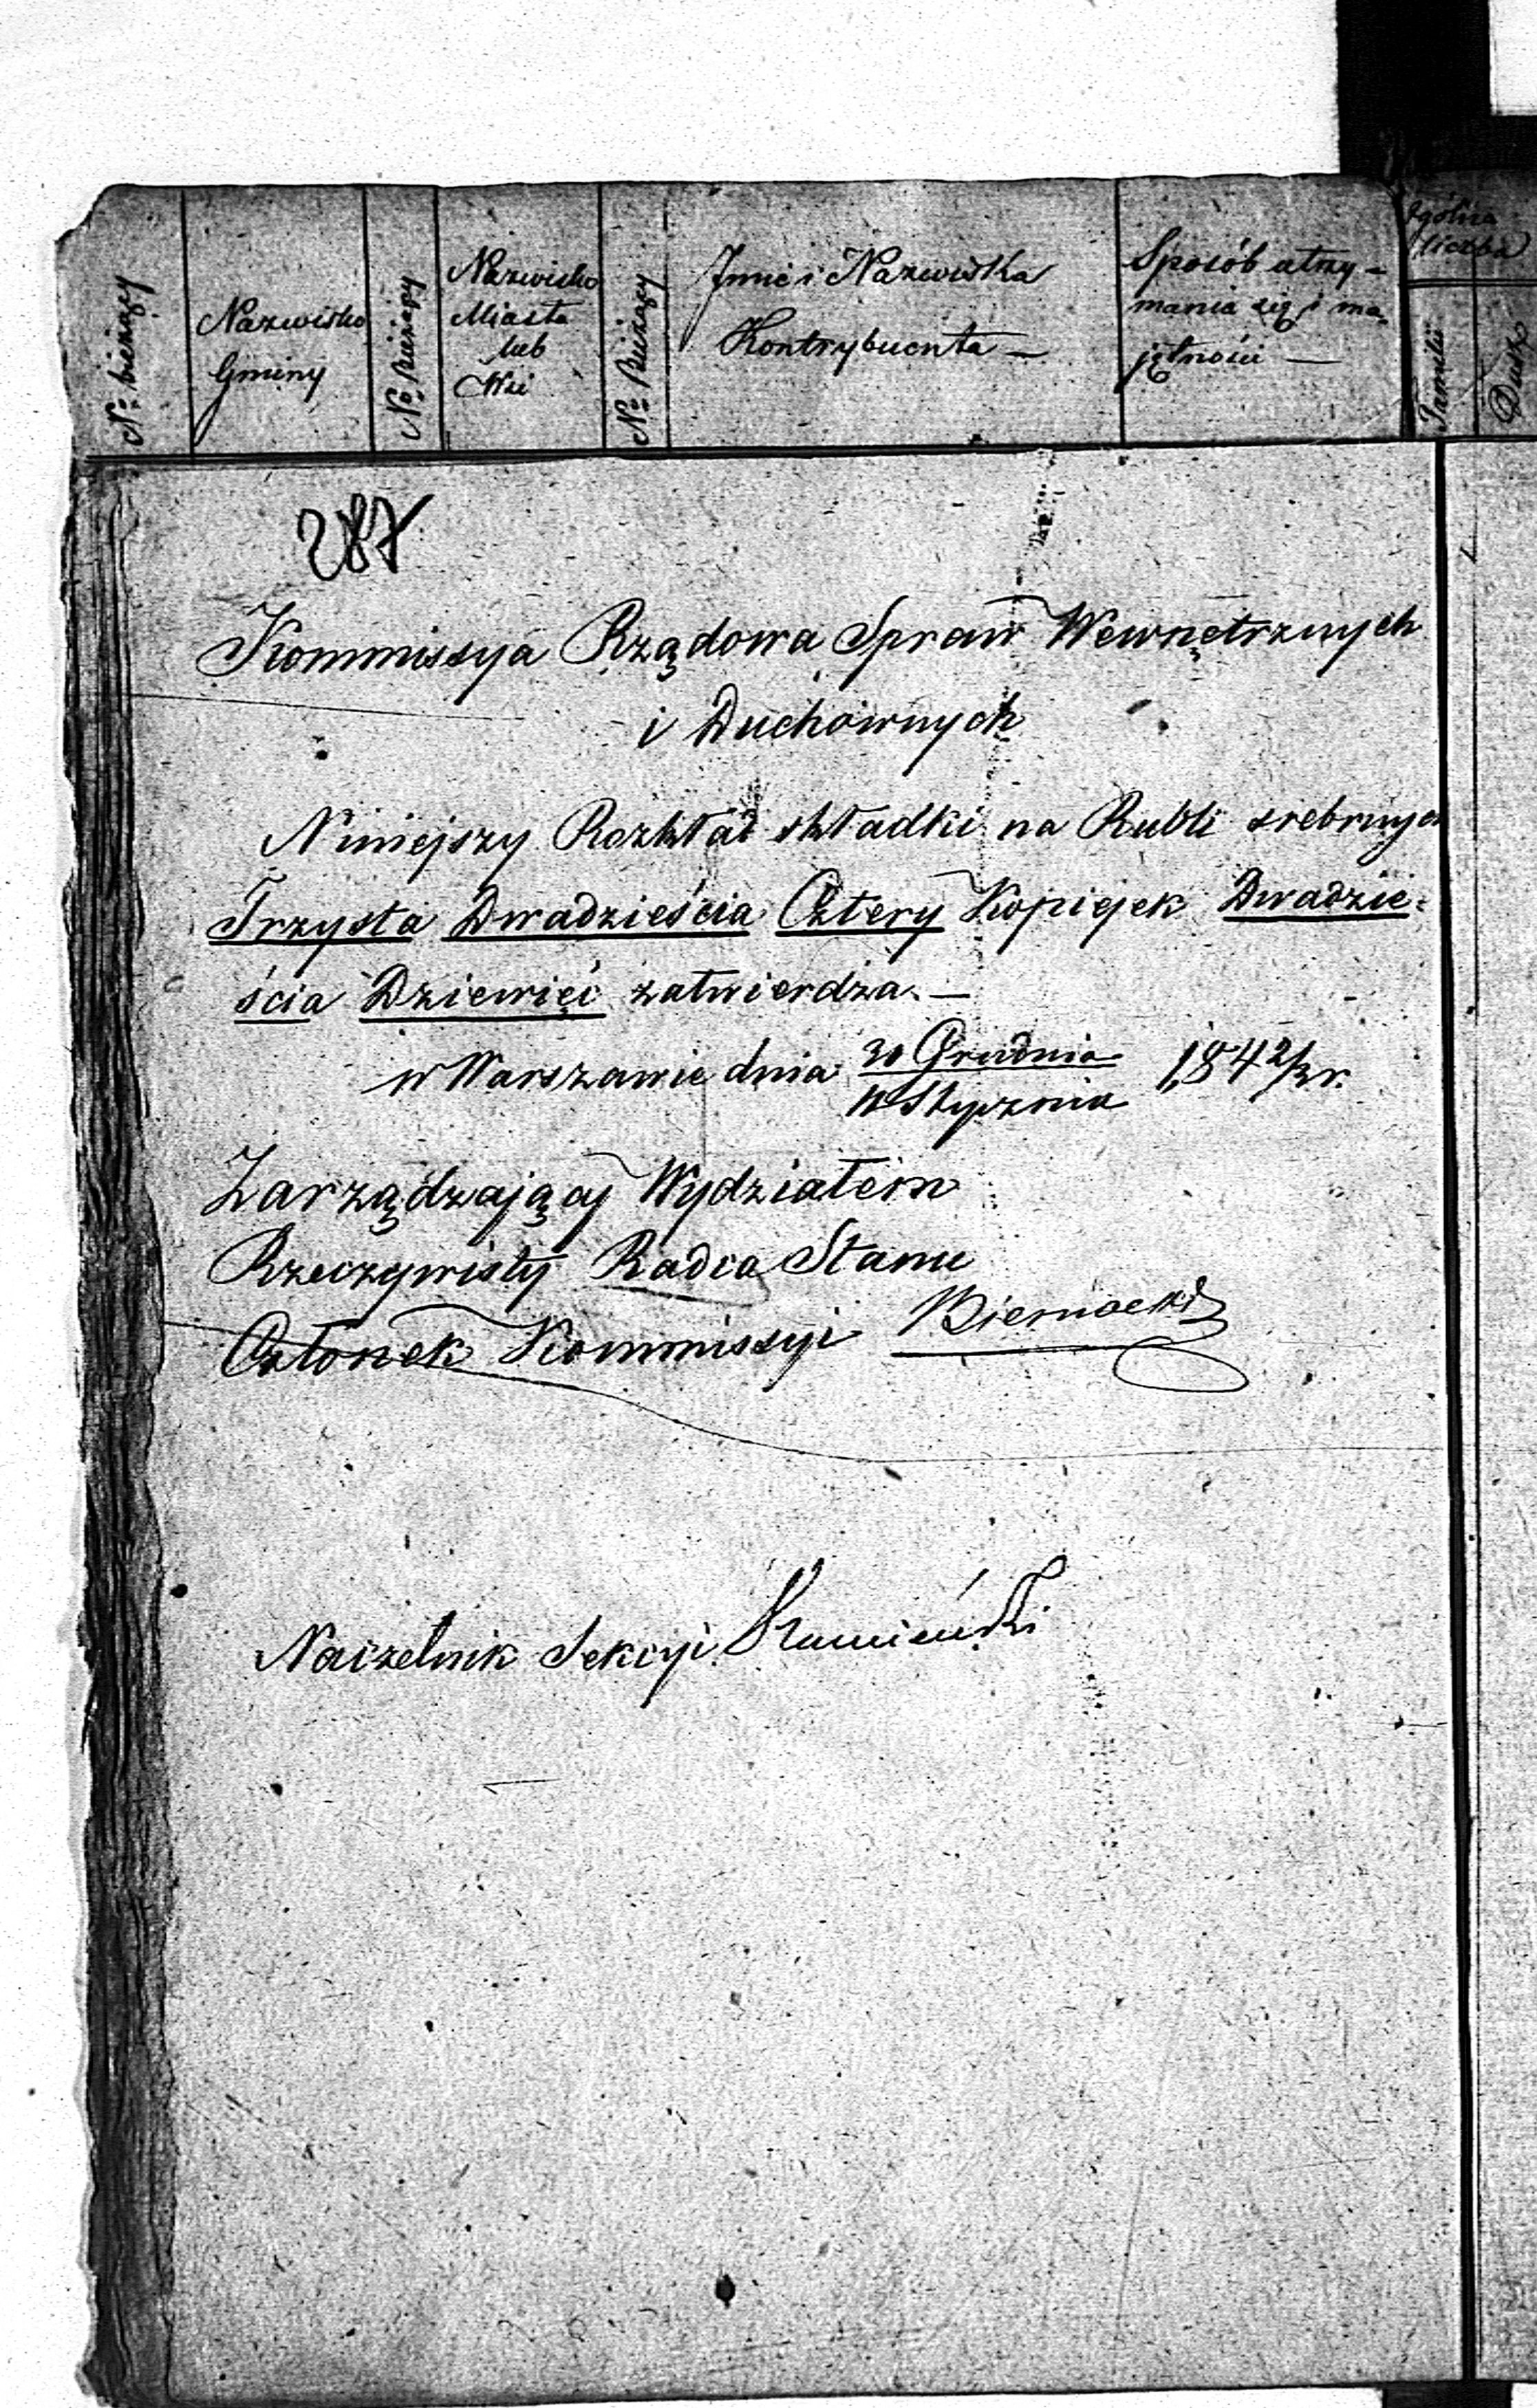 Ogólna
liczba
Nº bieżący
Nazwisko
Gminy
Nº Bieżący
Nazwisko
Miasta
lub
Wsi
Nº Bieżący
Imie i Nazwiska
Kontrybuenta —
Sposób utrzy-
mania się i ma-
jętności —
Familii
Dusz
287
Kommissya Rządowa Spraw Wewnętrznych
i Duchownych
Niniejszy Rozkład składki na Rubli srebrnych
Trzysta Dwadzieścia Cztery Kopiejek Dwadzie-
ścia Dziewięć zatwierdza. —
w Warszawie dnia 30 Grudnia 1842/3 r.
11 Stycznia
Zarządzający Wydziałem
Rzeczywisty Radca Stanu
Członek Kommissyi Biernacki
Naczelnik Sekcyi Kamieński